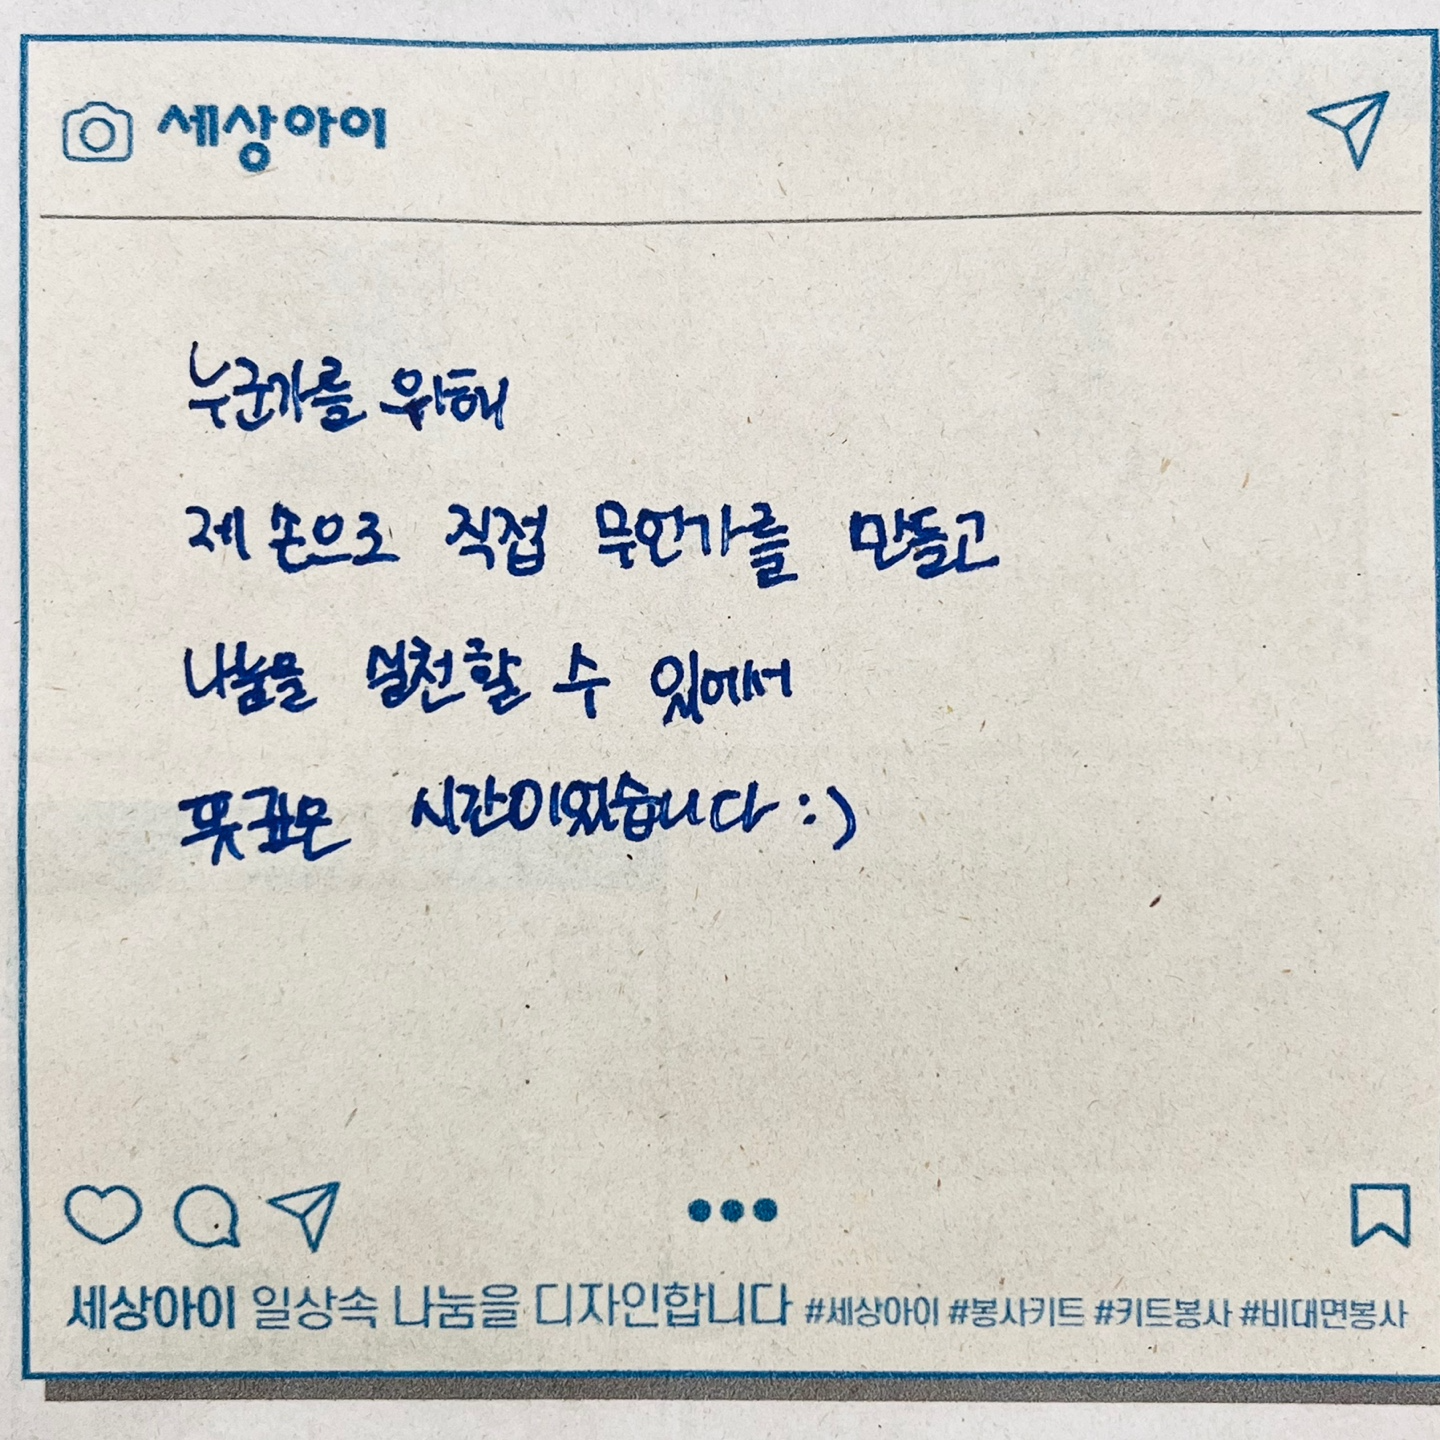 세상아이
누군가를 위해
제 손으로 직접 무언가를 만들고
나눔을 실천할 수 있에서
뜻깊은 시간이었습니다 :)
세상아이 일상속 나눔을 디자인합니다 #세상아이 #봉사키트 #키트봉사 #비대면봉사